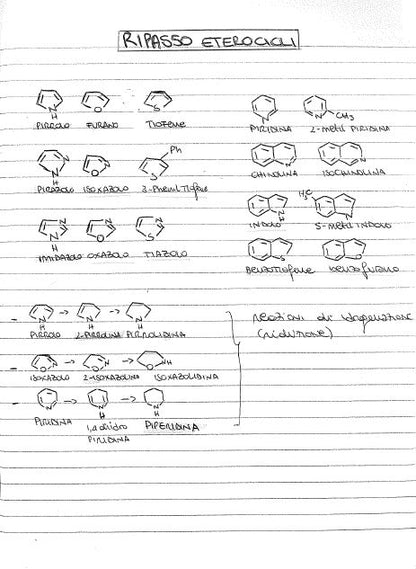 RIPASSO ETEROCICLI
PIRROLO FURANO TIOFENE
PIRIDINA 2-METIL PIRIDINA
CH3
Ph
PIRAZOLO ISOXAZOLO 3-PhENIL TIOFENE
CHINOLINA ISOCHINOLINA
H3C
INDOLO 5-METIL INDOLO
IMIDAZOLO OXAZOLO TIAZOLO
BENZOTIOFENE BENZOFURANO
- PIRROLO 2-PIRROLINA PIRROLIDINA
reazioni di idrogenazione
(riduzione)
- ISOXAZOLO 2-ISOXAZOLINA ISOXAZOLIDINA
- PIRIDINA 1,4 diidro PIPERIDINA
PIRIDINA